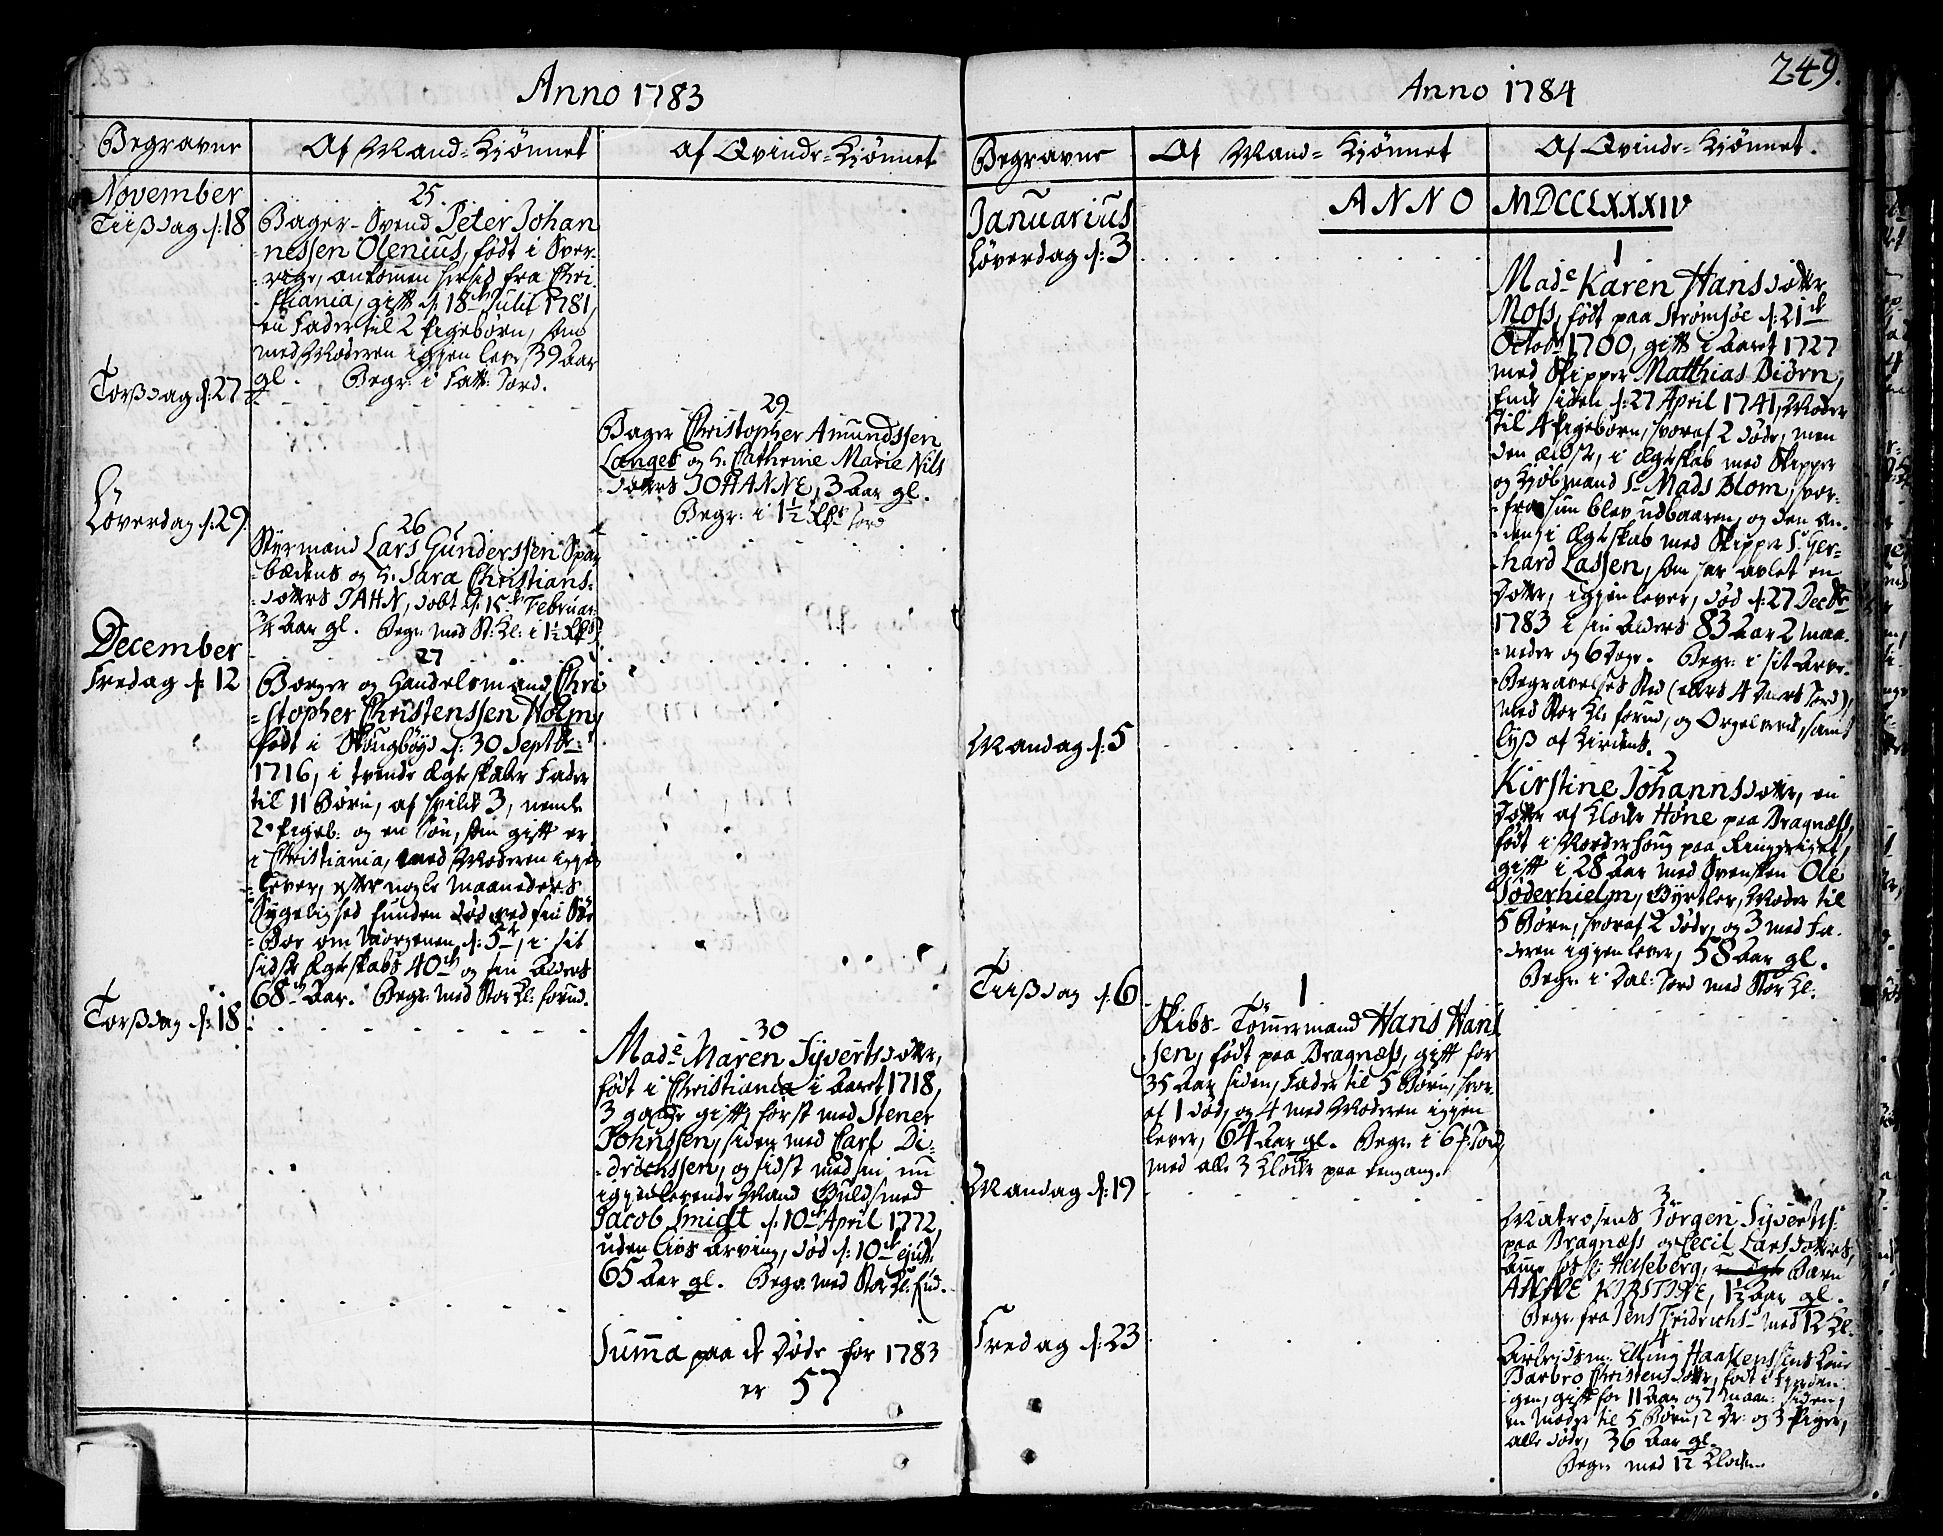 Anno 1783
Begravne
Af Mand-Kiønnet
af Qvinde-Kiønnet
November
Tiisdag d: 18
25.
Bager-Svend Peter Johan
nessen Olenius, født i Sver-
rige, ankomen hersid fra Chri-
stiania, gift d. 18de Julii 1781,
en Fader til 2 Pigebørn, som
med Moderen igien lever, 39 Aar
gl. Begr: i Fatt: Jord.
Torsdag d. 27
29
Bager Christopher Amundssen
Langes og H. Cathrine Marie Nils
dotters JOHANNE, 3 Aar gl.
Begr: i 1½ Jord
Løverdag d. 29
26
Styrmand Lars Gunderssen Spar
bedens og H. Sara Christians-
dotters JAHN, døbt d. 15de Februar:
¾ Aar gl. Begr: med St: Kl: i 1½
December
Fredag d: 12
27
Borger og Handelsmand Chri
stopher Christenssen Holm,
født i Skougbøyd d: 30 Septbr:
1716, i trende Ægteskaber Fader
til 11 Børn, af hvilke 3, neml:
2 Pigeb: og en Søn, som gift er
i Christiania, med Moderen igien
lever, efter nogle Maaneders
Sygelighed funden død ved sin
Bor om Morgenen d: 5te, i sit
sidste Ægteskabs 40de og sin Alders
68de Aar. Begr: med Stor Kl: forud.
Torsdag d: 18
30
Made Maren Syvertsdotter,
født i Christiania i Aaret 1718,
3 gange gift, først med Stener
Johnssen, siden med Carl Di-
drichssen, og sidst med sin nu
igienlevende Mand Guldsmed
Jacob Smidt d. 10de April 1772,
uden Livs Arving, død d: 10de ejusd:
65 Aar gl. Begr: med Stor Kl: fud.
Summa paa de Døde for 1783
er 57
Anno 1784
249.
Begravne
Af Mand-Kiønnet
Af Qvinde-Kiønnet.
Januarius
ANNO MDCCLXXXIV
Løverdag d: 3
1
Made Karen Hansdotter
Moss, født paa Strømsøe d: 21de
Octob: 1700, gift i Aaret 1727
med Skipper Matthias Biørn,
Enke siden d: 27 April 1741, Moder
til 4 Pigebørn, hvoraf 2 døde, men
den ældste, i Ægteskab med Skipper
og Kiøbmand Sr Mads Blom, hvor-
fra hun blev udbaaren, og den an-
den i Ægteskab med Skipper Sr Ger-
hard Lassen, som har avlet en
Dotter, igien lever, død d: 27 Decbr
1783 i sin Alders 83 Aar 2 Maa-
neder og 6 Dage. Begr: i sit Arve-
Begravelses Sted (
med Stor Kl: forud, og Orgelverk, samt
Lys af Kirkens.
Mandag d: 5
2
Kirstine Johannsdotter, en
Dotter af Klocker Høne paa Bragnæss,
født i Norderhoug paa Ringeriget,
gift i 28 Aar med Svensken Ole
Söderhielm, Gyrtler, Moder til
5 Børn, hvoraf 2 døde, og 3 med Fa-
deren igien lever, 58 Aar gl.
Begr: i Dal: Jord med Stor Kl:
Tiisdag d: 6
1
Skibs-Tømmermand Hans Han
sen, født paa Bragnæss, gift for
35 Aar siden, Fader til 5 Børn, hvor-
af 1 død, og 4 med Moderen igien
lever, 64 Aar gl. Begr: i 6 Jord,
med alle 3 Klocker paa engang.
Mandag d: 19
3
Matrosens Jørgen Syverts:
paa Bragnæss og Cecil Larsdotters,
Helseberg, Barn
ANNE KIRSTINE, 1½ Aar gl.
Begr: fra Jens Fridrichs med 12 Kl.
Fredag d: 23
4
Arbeidsm: Elling Haakenssens Kone
Barbro Christensdotter, født i
gen, gift for 11 Aar og 7 Maan: siden,
en Moder til 5 Børn, 2 Dr: og 3 Piger,
alle døde, 36 Aar gl.
Begr: med 12 Klocken